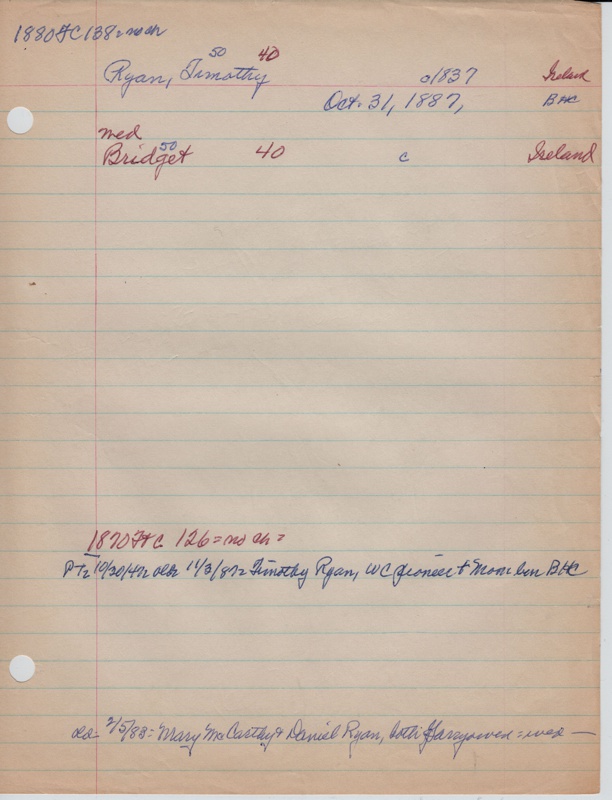 1880 FC 138 = no ch
50 40
Ryan, Timothy c1837 Ireland
Oct. 31, 1887, BHC
med
50
Bridget 40 c Ireland
1870 FC 126 = no ch =
10/30/ 11/3/87= Timothy Ryan, WC pioneer + Mom bur BHC
2/5/88 = Mary McCarthy + Daniel Ryan, both Garryowen = wed —